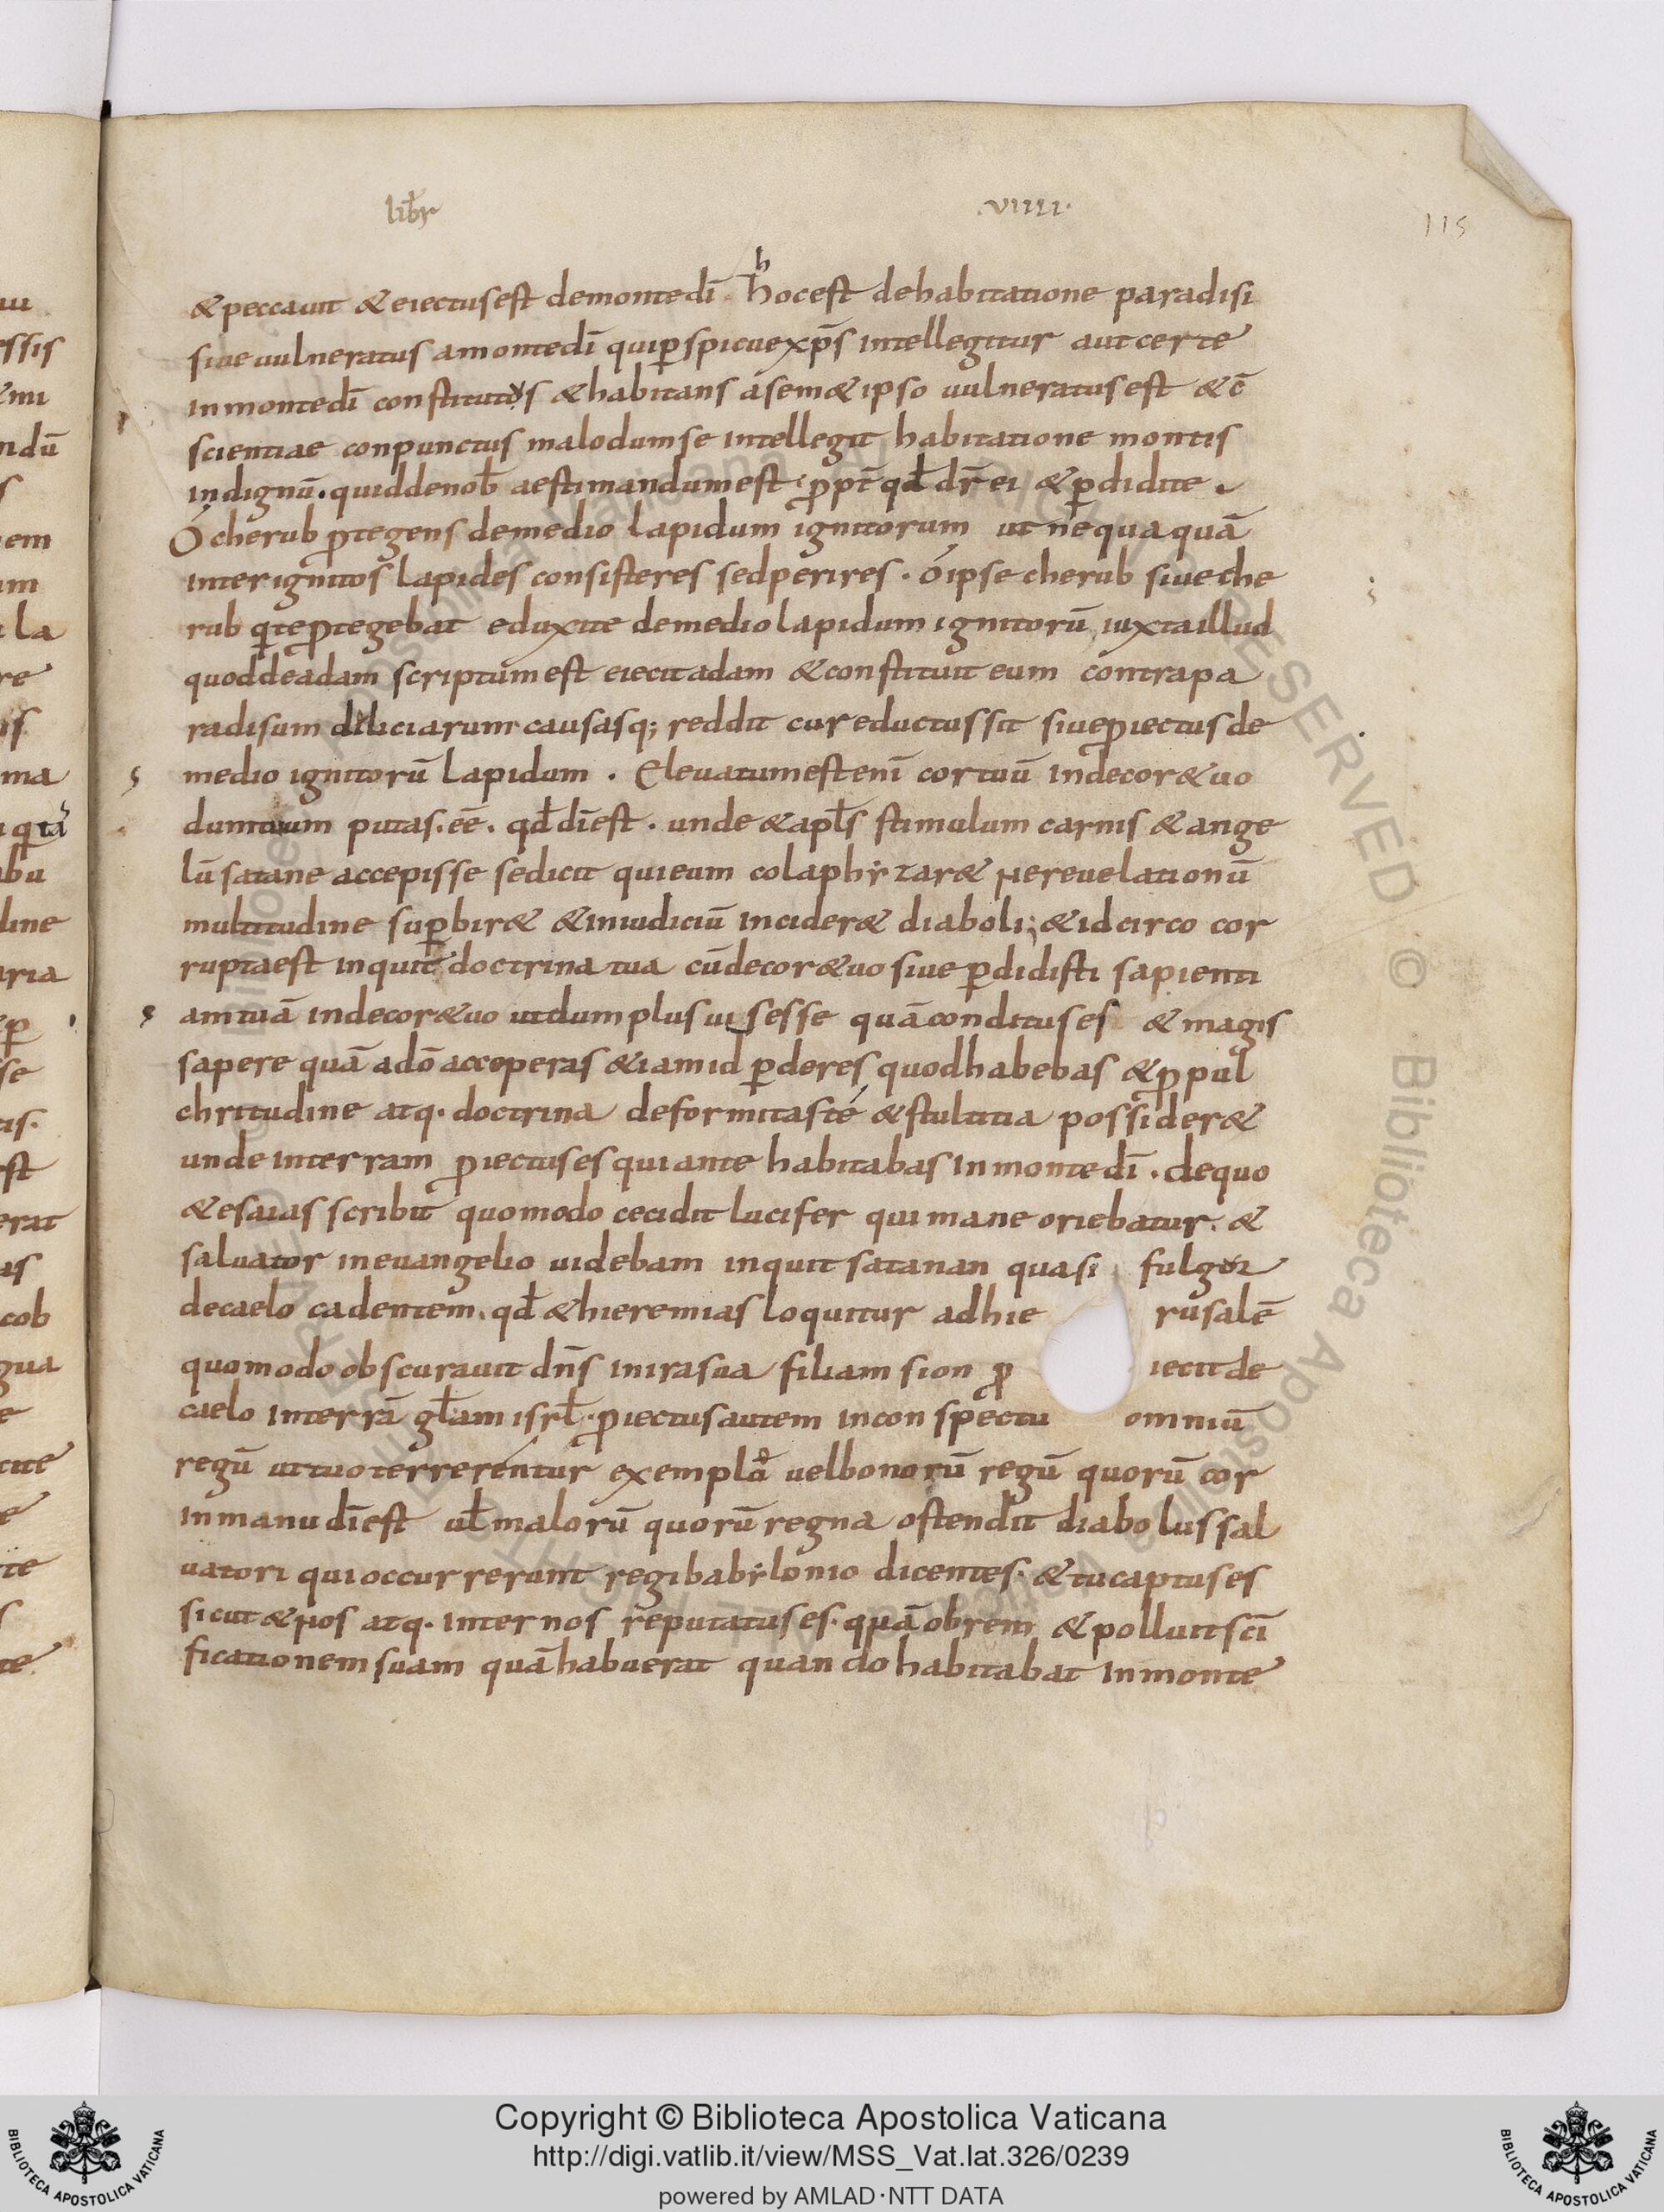 lib̄r .VIIII. 115
h
& peccauit & eiectus est de monte dī. hoc est de habitatione paradisi
siue uulneratus a monte dī qui ꝑspicue xp̄s intellegitur aut certe
in monte dī constitutos & habitans a sem& ipso uulneratus est & c̄
scientiae conpunctus malo dum se intellegit habitatione montis
indignū. quid de nob̄ aestimandum est ꝓpt̄ qd̄ dr̄ ei & ꝑdidit te.
O cherub ꝓtegens de medio lapidum ignitorum ut nequaquā
inter ignitos lapides consisteres sed perires. ó ipse cherub siue che
rub q̇ te ꝓtegebat eduxit te de medio lapidum ignitorū iuxta illud
quod de adam scriptum est eiecit adam & constituit eum contra pa
radisum diliciarum causasq; reddit cur eductus sit siue ꝓiectus de
medio ignitorū lapidum. Eleuatum est enī cor tuū in decore tuo
dum tuum putas. eē. qd̄ dī est. unde & apl̄s stimulum carnis & ange
lū satane accepisse se dicit qui eum colaphyzar& ne reuelationū
multitudine suꝑbir& & in iudiciū incider& diaboli; & idcirco cor
rupta est inquit doctrina tua cū decore tuo siue ꝑdidisti sapienti
am tuā in decore tuo ut dum plus uis esse quā conditus es & magis
sapere quā a dō acceperas & iam id ꝑderes quod habebas & ꝓ pul
chritudine atq. doctrina deformitas té & stultitia possider&
unde in terram ꝓiectus es qui ante habitabas in monte dī. de quo
& esaias scribit quomodo cecidit lucifer qui mane oriebatur. &
saluator in euangelio uidebam inquit satanan quasi fulgor
de caelo cadentem. qd̄ & hieremias loquitur ad hie rusalē
quomodo obscurauit dn̄s in ira sua filiam sion ꝓ iecit de
caelo in terrā gl̄am isrl̄. ꝓiectus autem in conspectu omniū
regū ut tuo terrerentur exempla uel bonorū regū quorū cor
in manu dī est ul̄ malorū quorū regna ostendit diabolus sal
uatori qui occurrerunt regi babylonio dicentes. & tu captus es
sicut & nos atq. inter nos reputatus es. quā ob rem & polluit sc̄i
ficationem suam quā habuerat quando habitabat in monte
Copyright © Biblioteca Apostolica Vaticana
http://digi.vatlib.it/view/MSS_Vat.lat.326/0239
powered by AMLAD·NTT DATA
BIBLIOTECA APOSTOLICA VATICANA
BIBLIOTECA APOSTOLICA VATICANA